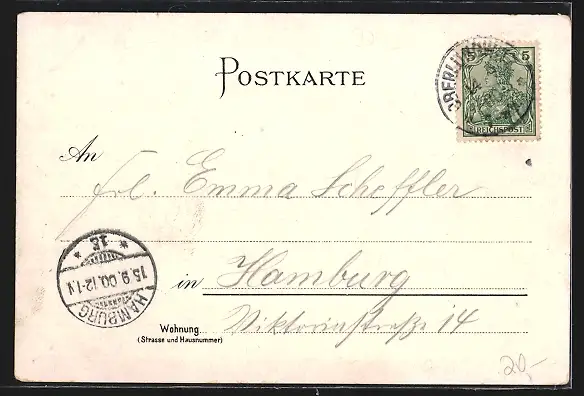 POSTKARTE
5 5
REICHSPOST
An
Frl. Emma Scheffler
in Hamburg
Wohnung
(Strasse und Hausnummer)
Viktoriastraße 14
HAMBURG
15.9.00.12-1N
* 1g *
20,-